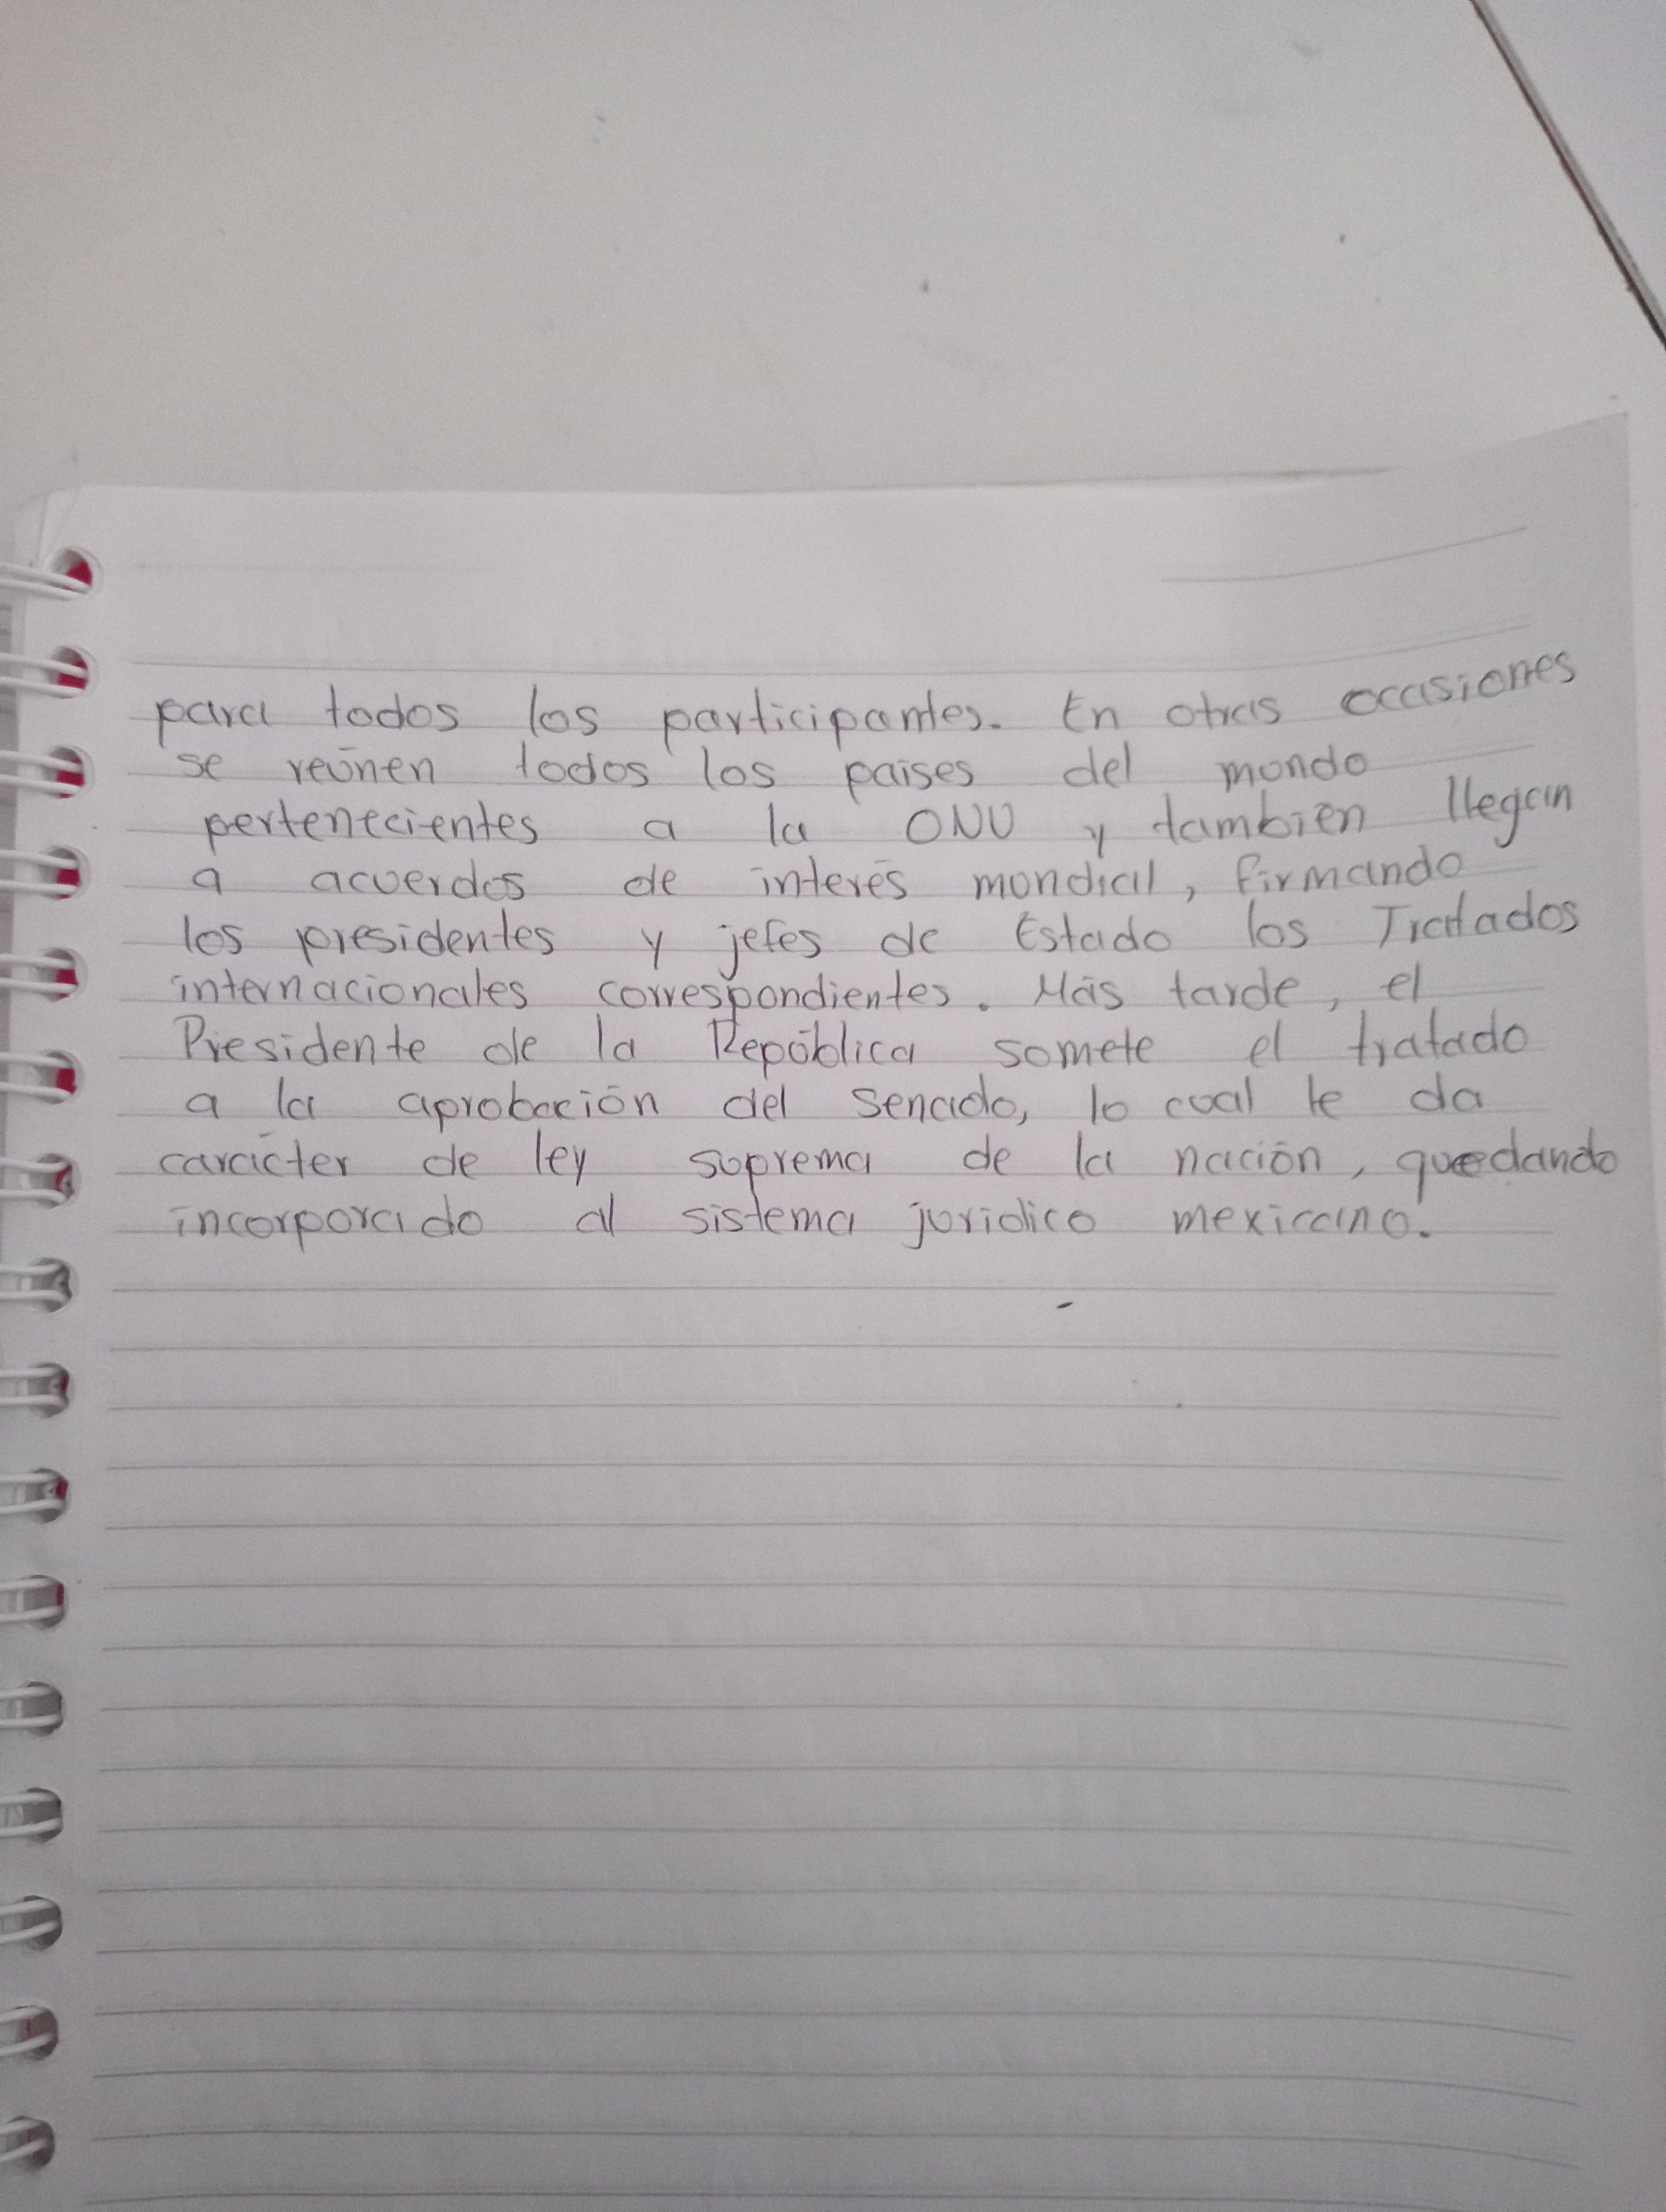 para todos los participantes. En otras occasiones
se reúnen todos los paises del mondo
pertenecientes a la ONU y también llegan
a acuerdos de interés mondial, firmando
los presidentes y jefes de Estado los Tratados
internacionales correspondientes. Más tarde, el
Presidente de la República somete el tratado
a la aprobación del Senado, lo cual le da
carácter de ley suprema de la nación, quedando
incorporado al sistema juridico mexicano.